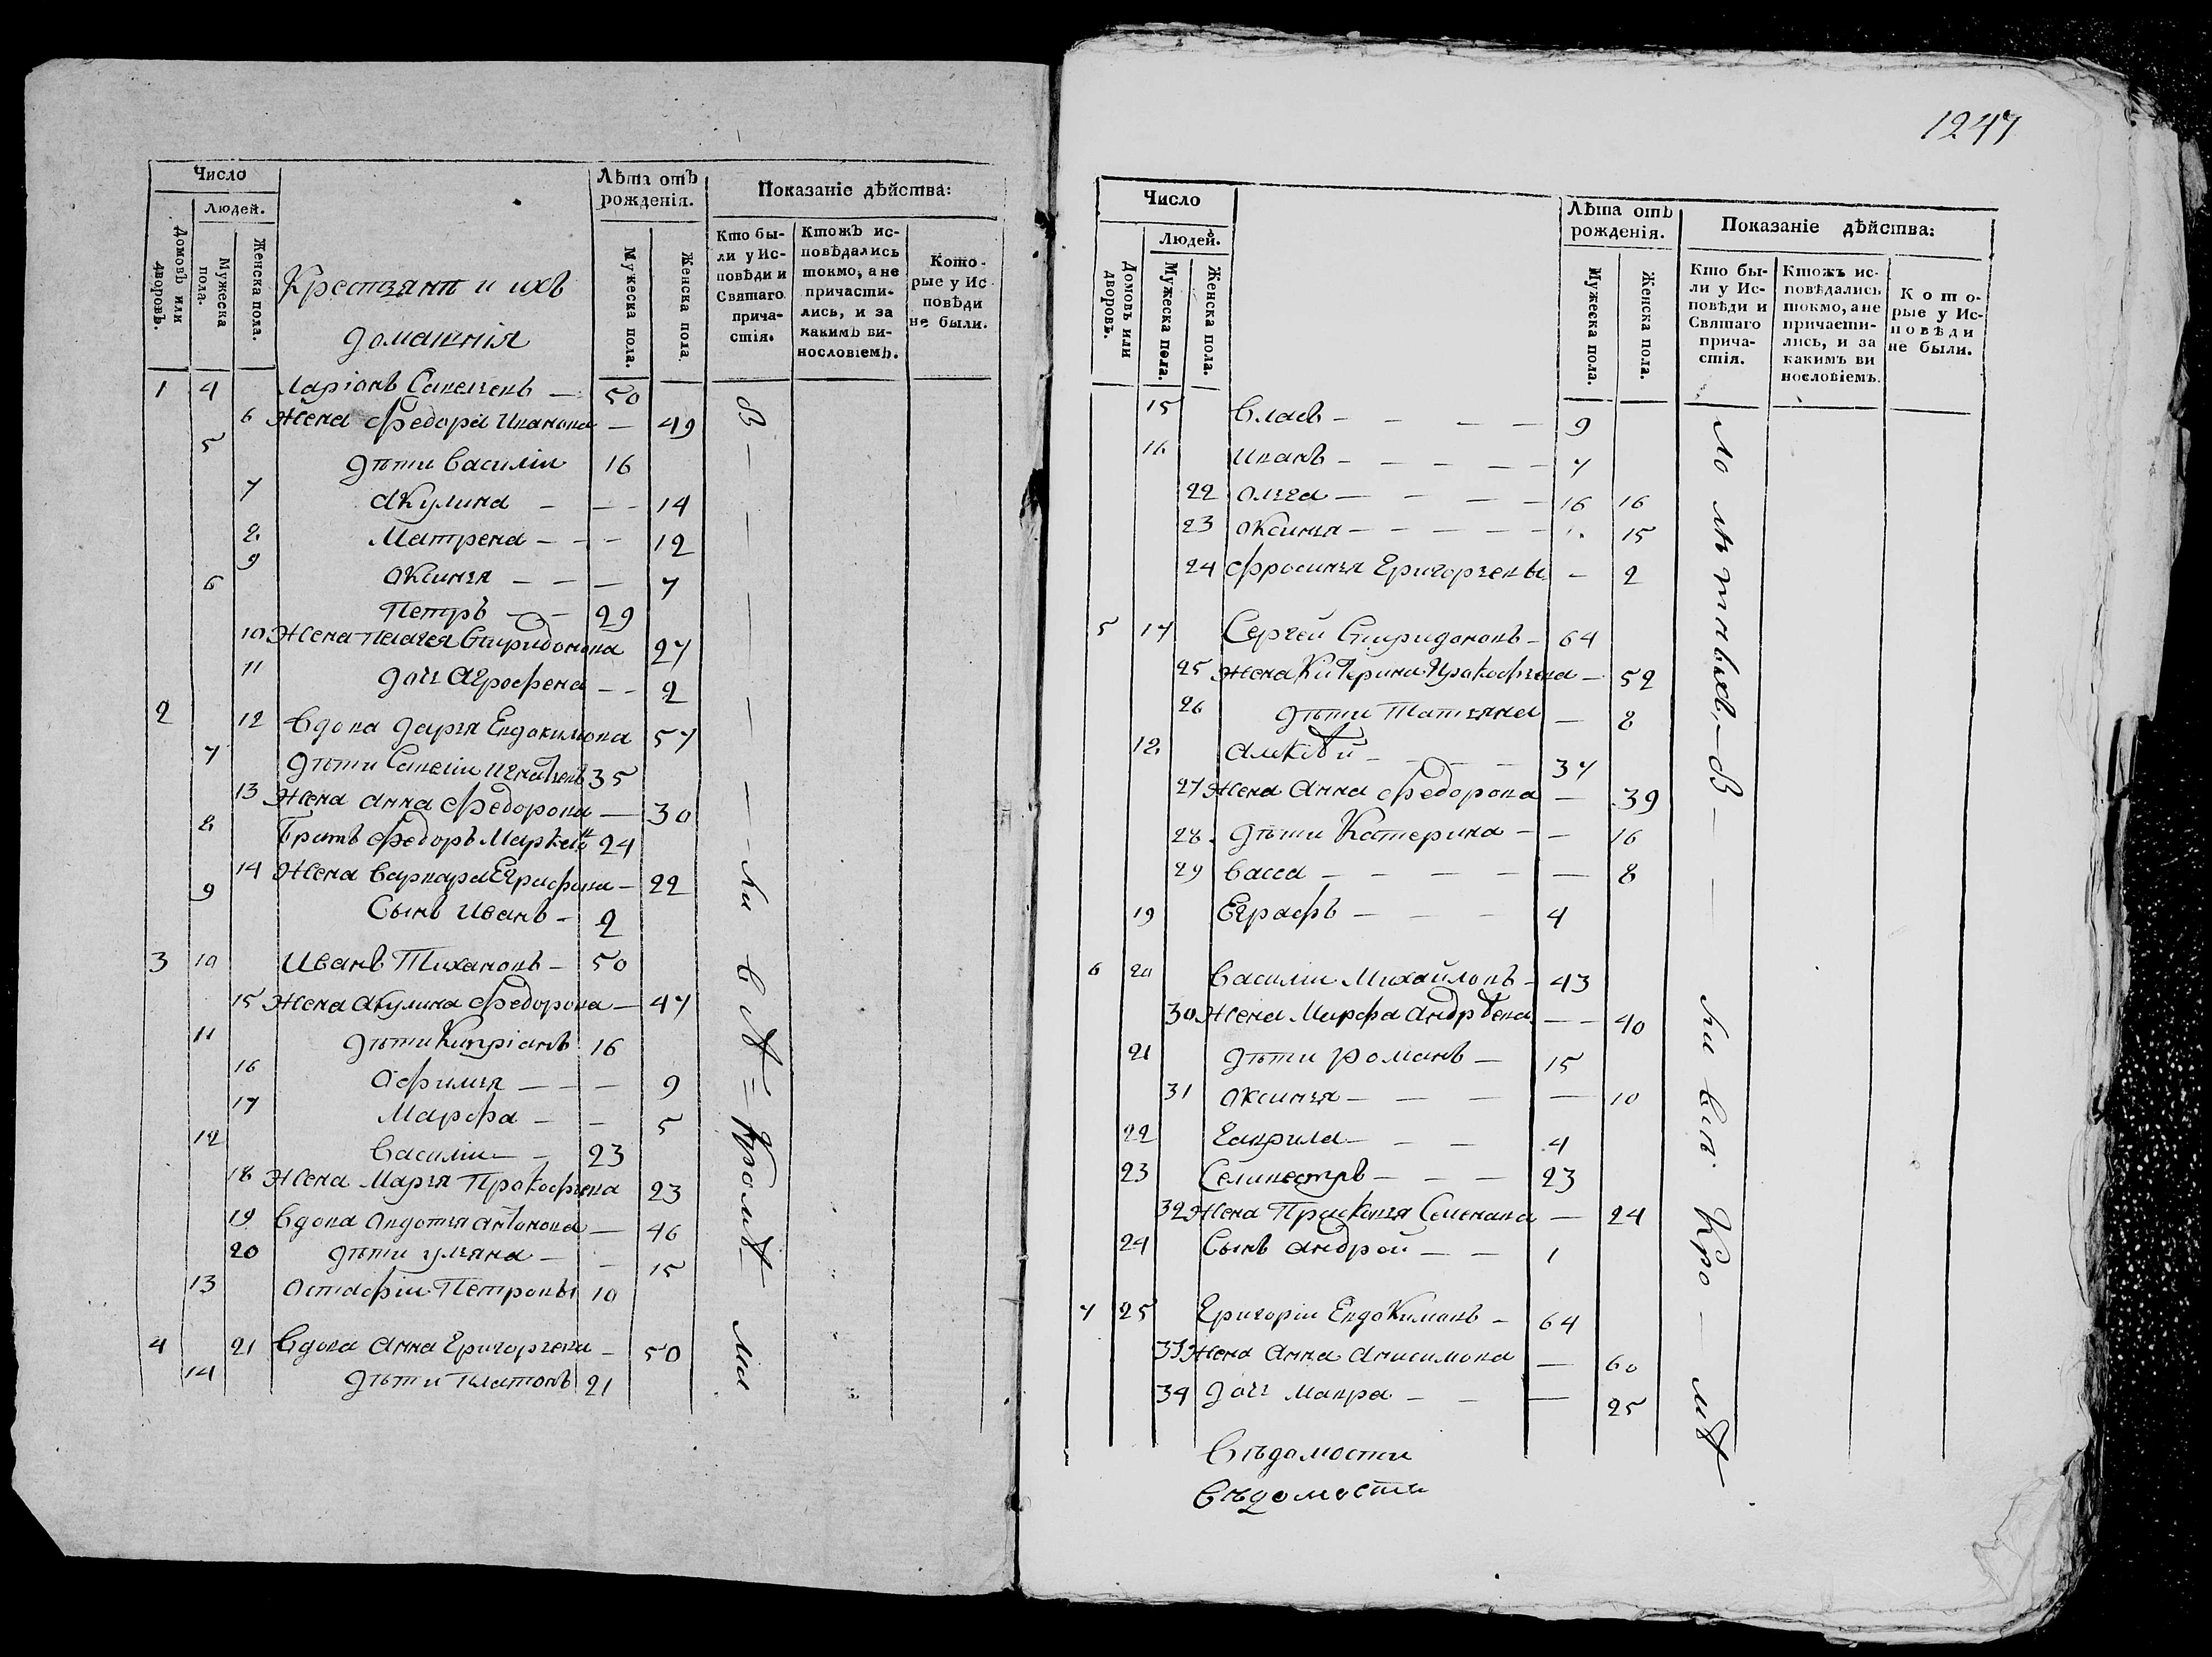 Число
Людей.
Домовъ или дворовъ.
Мужеска пола.
Женска пола.
Лѣта отъ рожденія.
Мужеска пола.
Женска пола.
Показаніе дѣйства:
Кто были у Исповѣди и Святаго причастія.
Ктожъ исповѣдались токмо, а не причастились, и за какимъ винословіемъ.
Которые у Исповѣди не были.
Крестьяня и ихъ
домашнія
1 4 Ларіонъ Савельевъ — 50
6 Жена Федора Иванова — 49
5 дѣти Василіи 16
7 Акулина — — 14
8 Матрена — — 12
9 Оксинья — — — 7
6 Петръ — — 29
10 Жена Пелагея Спиридонова 27
11 дочь Агрофена — — 2
2 12 Вдова Дарья Евдокимова 57
7 дѣти Савеліи Игнатьевъ 35
13 Жена Анна Федорова — 30
8 Братъ Федоръ 24
14 Жена Варвара Еграфова — 22
9 Сынъ Иванъ — 2
3 10 Иванъ Тихановъ — 50
15 Жена Акулина Федорова — 47
11 дѣти Кипріанъ 16
16 Офимья — — — 9
17 Марфа — — 5
12 Василіи — — 23
18 Жена Марья Прокофьева 23
19 Вдова Авдотья Антонова — 46
20 дѣти Ульяна — — 15
13 Остафіи Петровы 10
4 21 Вдова Анна Григорьева — 50
14 дѣти Платонъ 21
1247
Число
Людей.
Домовъ или дворовъ.
Мужеска пола.
Женска пола.
Лѣта отъ рожденія.
Мужеска пола.
Женска пола.
Показаніе дѣйства:
Кто были у Исповѣди и Святаго причастія.
Ктожъ исповѣдались токмо, а не причастились, и за какимъ винословіемъ.
Которые у Исповѣди не были.
15 Власъ — — — — 9
16 Иванъ — — — — — 7
22 Ольга — — — — 16 16
23 Оксинья — — — — — 15
24 Фросинья Григорьевы — 2
5 17 Сергей Спиридоновъ — 64
25 Жена Катерина Прокофьева — 52
26 дѣти Татьяна — 8
18 Алкѣй — — — — 37
27 Жена Анна Федорова — 39
28 дѣти Катерина — — 16
29 Васса — — — — — 8
19 Еграфъ — — — 4
6 20 Василіи Михайловъ — 43
30 Жена Марфа Андрѣева — — 40
21 дѣти Романъ — 15
31 Оксинья — — — — 10
22 Гаврила — — — 4
23 Селивестръ — — — 23
32 Жена Прасковья Семенова — 24
24 Сынъ Андрей — — 1
7 25 Григоріи Евдокимовъ — 64
33 Жена Анна Анисимова — 60
34 дочь Мавра — — — 25
Вѣдомости
Вѣдомости